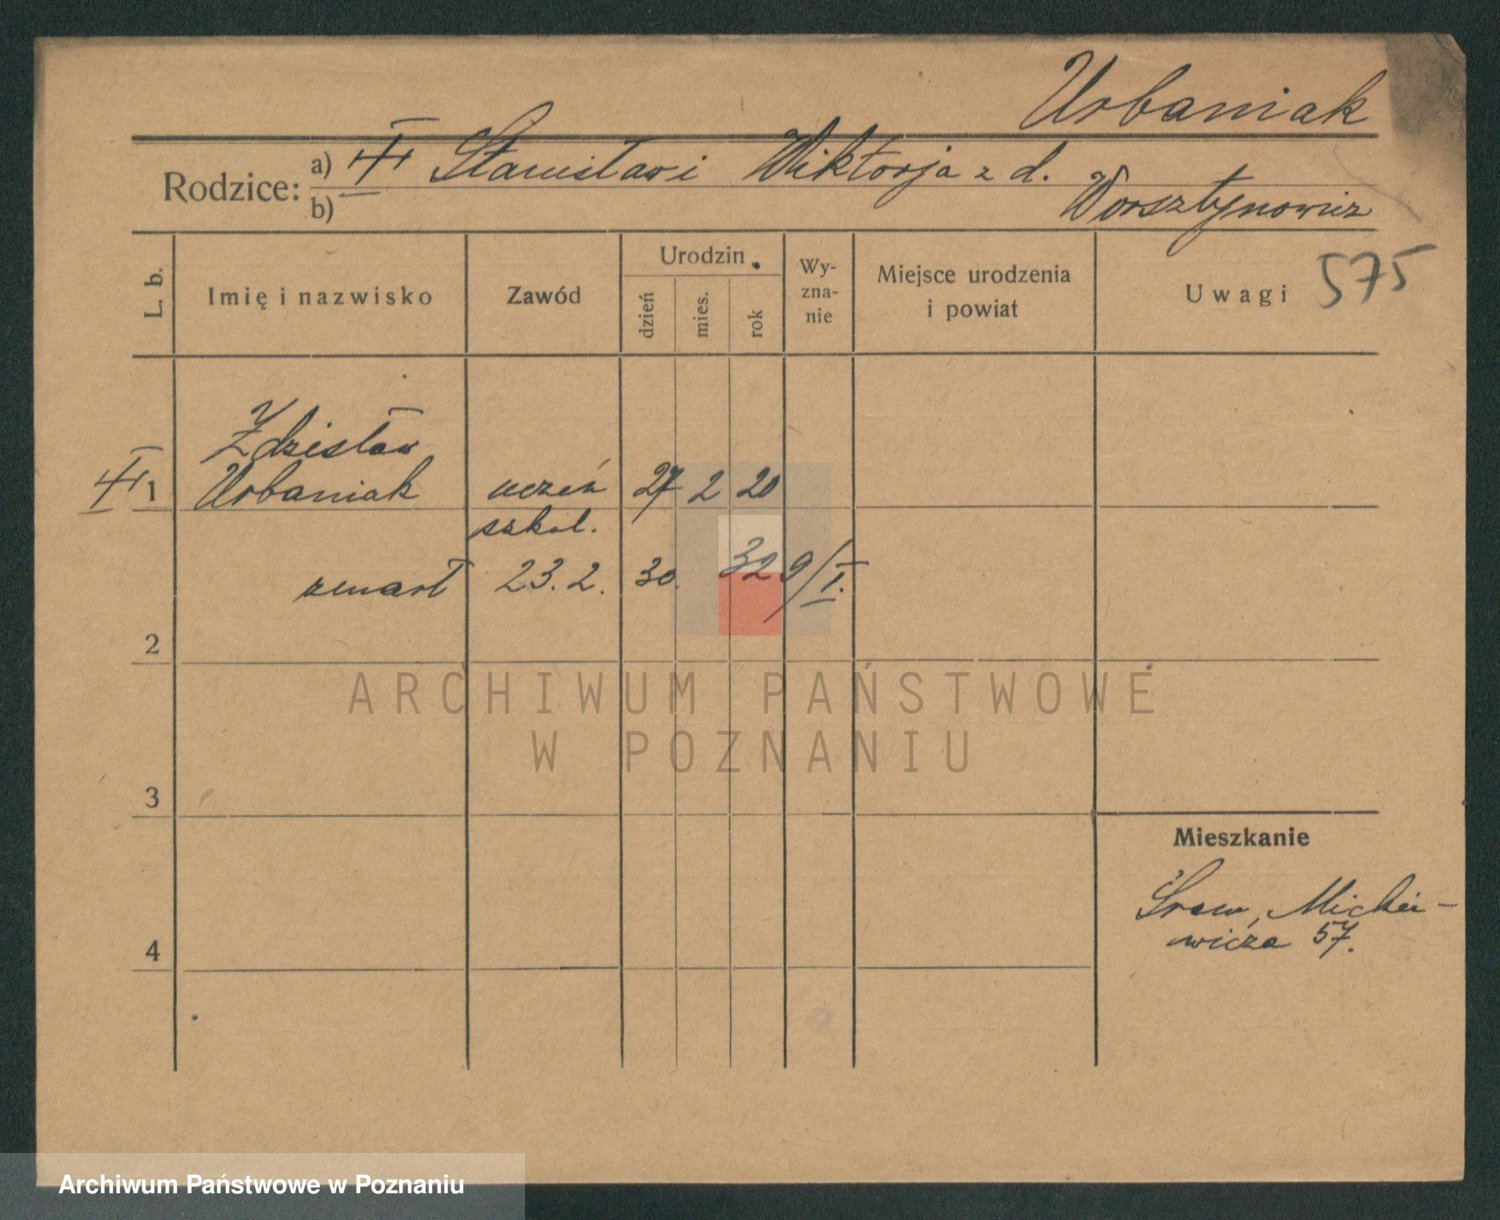 Urbaniak
Rodzice: a) Stanisław i Wiktorja z d.
b) Worsztynowicz
575
L. b. Imię i nazwisko Zawód Urodzin dzień mies. rok Wy-zna-nie Miejsce urodzenia i powiat Uwagi
Zdzisław
1 Urbaniak uczeń 27 2 20
szkol.
zmarł 23. 2. 30. 32 9/I.
2
ARCHIWUM PAŃSTWOWE
W POZNANIU
3
Mieszkanie
Śrem, Mickie-
wicza 57.
4
Archiwum Państwowe w Poznaniu